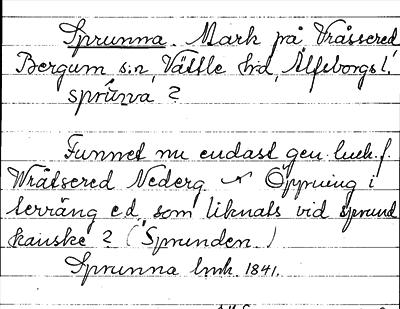 Sprunna. Mark på Vråssered
Bergum s:n, Vättle hrd, Älfsborgs l.
sprunna ?
Funnet nu endast gen. luck. f.
Wråtsered Nederg. Öppning i
terräng e.d. som liknats vid sprund
kanske ? (Sprunden.)
Sprunna lmk. 1841.